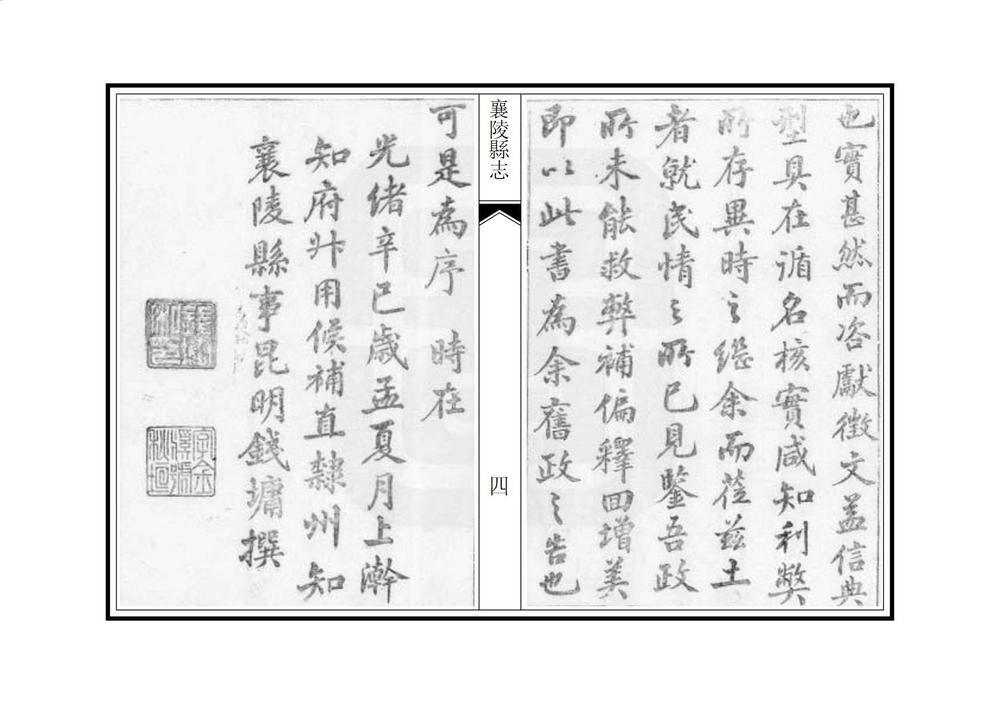 也實甚然而咨獻徵文益信典
型具在循名核實咸知利弊
所存異時之繼余而蒞茲土
者就民情之所已見鑒吾政
所未能救弊補偏釋回增美
即以此書為余舊政之告也
襄陵縣志
四
可是為序　時在
光緒辛巳歲孟夏月上澣
知府升用候補直隸州知
襄陵縣事昆明錢墉撰